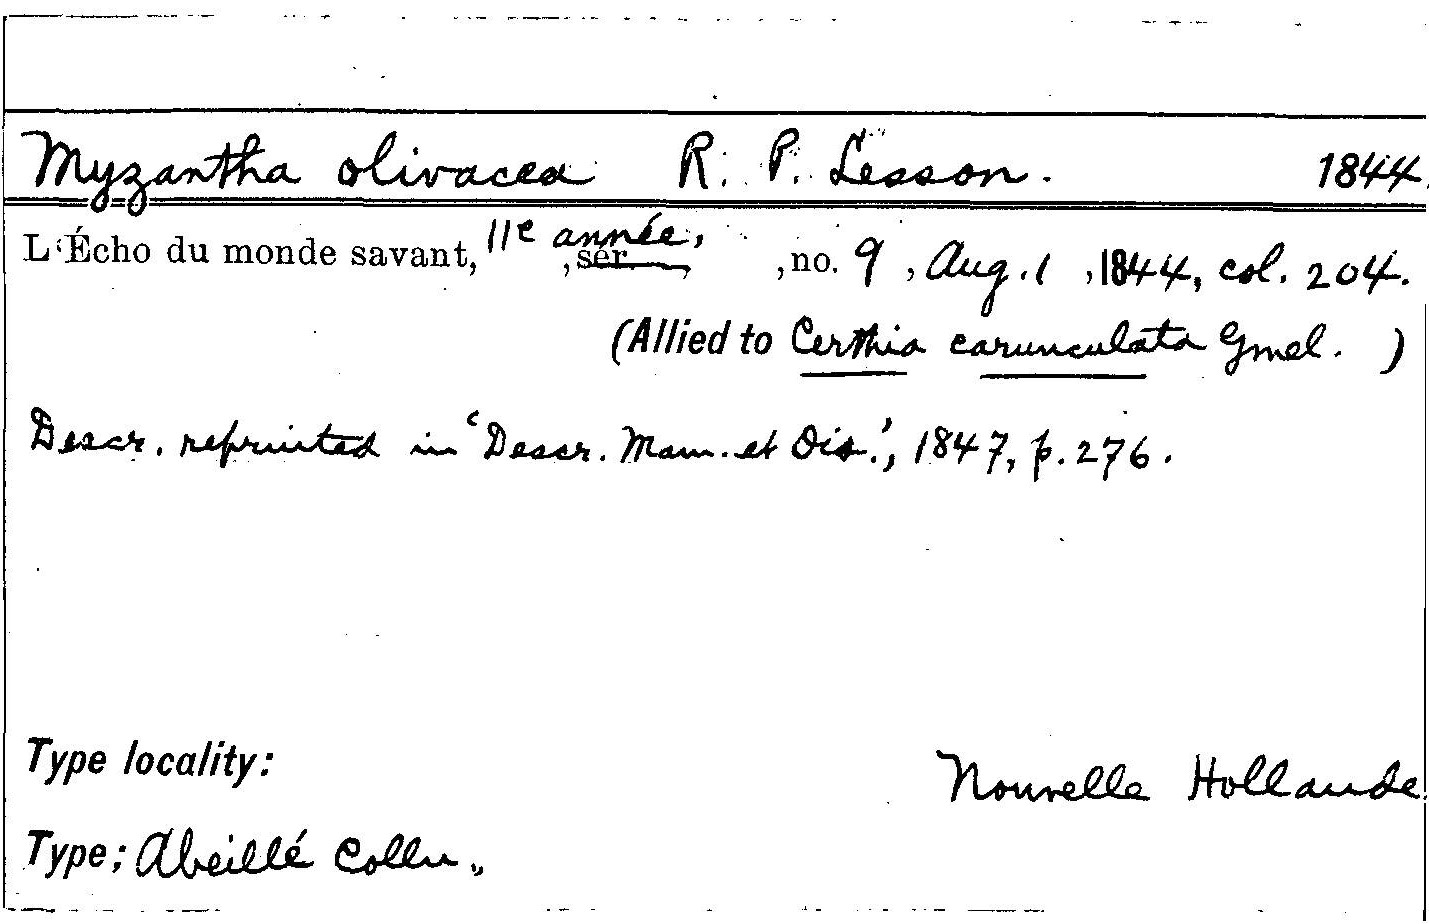 Myzantha olivacea R. P. Lesson. 1844.
L'Écho du monde savant, 11e année, , sér. , , no. 9 , Aug. 1 , 1844, col. 204.
(Allied to Certhia carunculata Gmel. )
Descr. reprinted in 'Descr. Mam. et Ois.', 1847, p. 276.
Type locality: Nouvelle Hollande
Type; Abeillé Colln.,